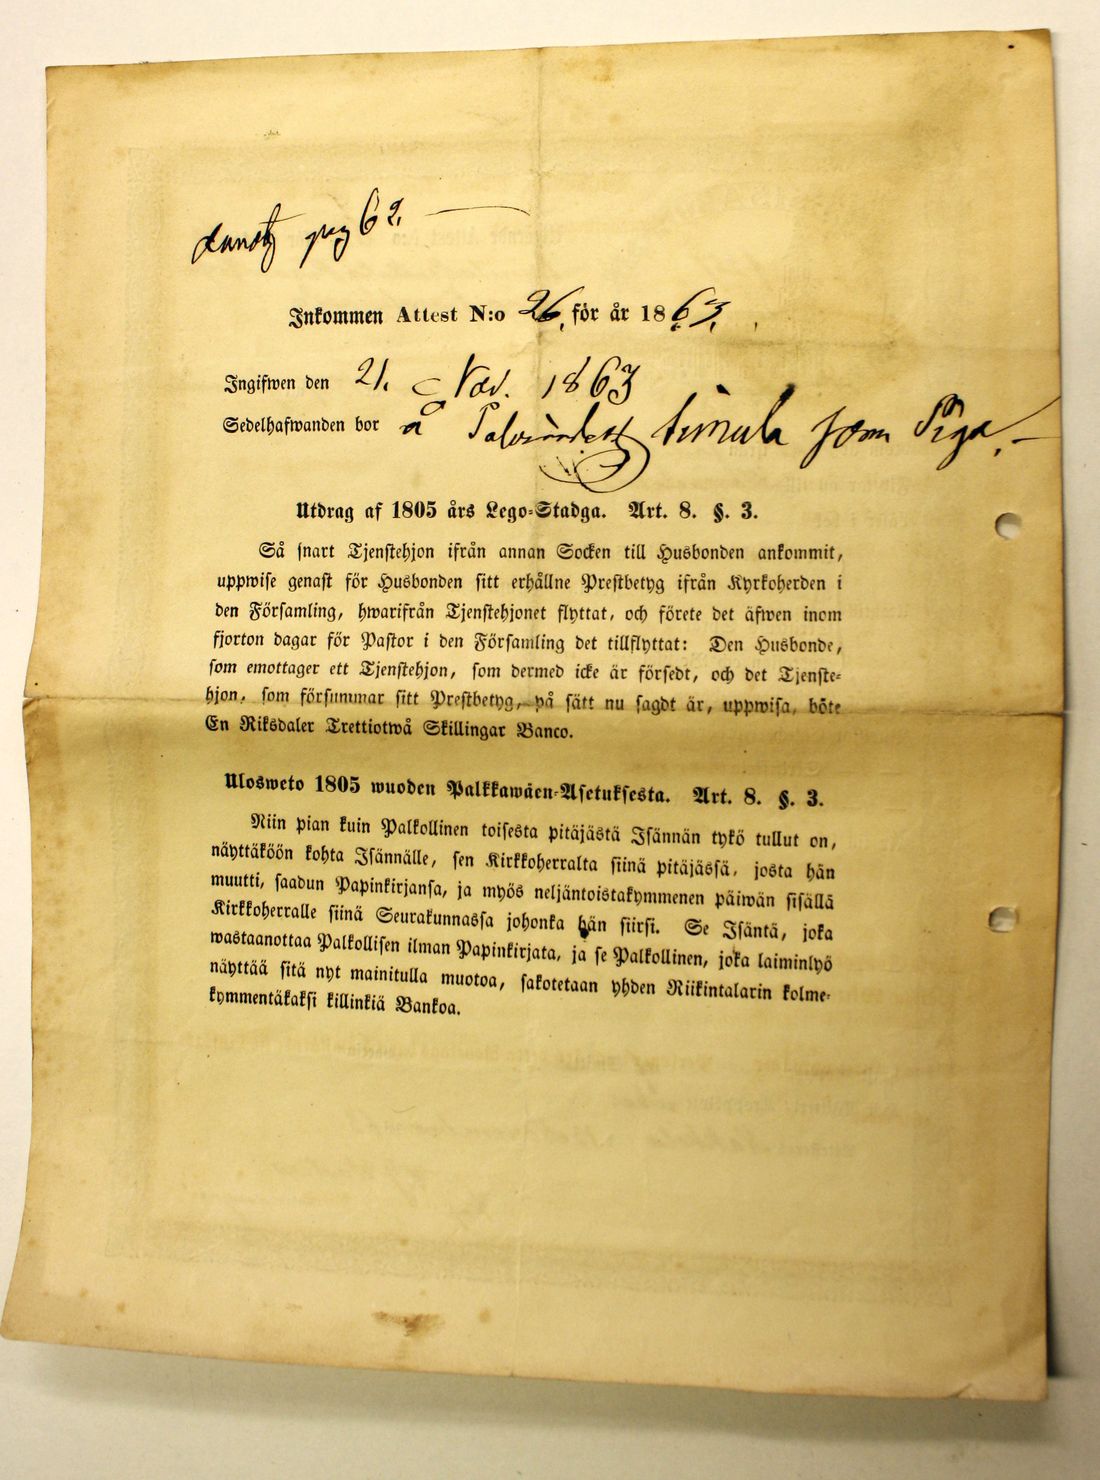 pag 62.
Inkommen Attest N:o 26, för år 1863,
Ingifwen den 21. Nov. 1863
Sedelhafwanden bor å timula som Piga.
Utdrag af 1805 års Lego-Stadga. Art. 8. §. 3.
Så snart Tjenstehjon ifrån annan Socken till Husbonden ankommit,
uppwise genast för Husbonden sitt erhållne Prestbetyg ifrån Kyrkoherden i
den Församling, hwarifrån Tjenstehjonet flyttat, och förete det äfwen inom
fjorton dagar för Pastor i den Församling det tillflyttat: Den Husbonde,
som emottager ett Tjenstehjon, som dermed icke är försedt, och det Tjenste-
hjon, som försummar sitt Prestbetyg, på sätt nu sagdt är, uppwisa, böte
En Riksdaler Trettiotwå Skillingar Banco.
Ulosweto 1805 wuoden Palkkawäen-Asetuksesta. Art. 8. §. 3.
Niin pian kuin Palkollinen toisesta pitäjästä Isännän tykö tullut on,
näyttäköön kohta Isännälle, sen Kirkkoherralta siinä pitäjässä, josta hän
muutti, saadun Papinkirjansa, ja myös neljäntoistakymmenen päiwän sisällä
Kirkkoherralle siinä Seurakunnassa johonka hän siirsi. Se Isäntä, joka
wastaanottaa Palkollisen ilman Papinkirjata, ja se Palkollinen, joka laiminlyö
näyttää sitä nyt mainitulla muotoa, sakotetaan yhden Riikintalarin kolme-
kymmentäkaksi killinkiä Bankoa.